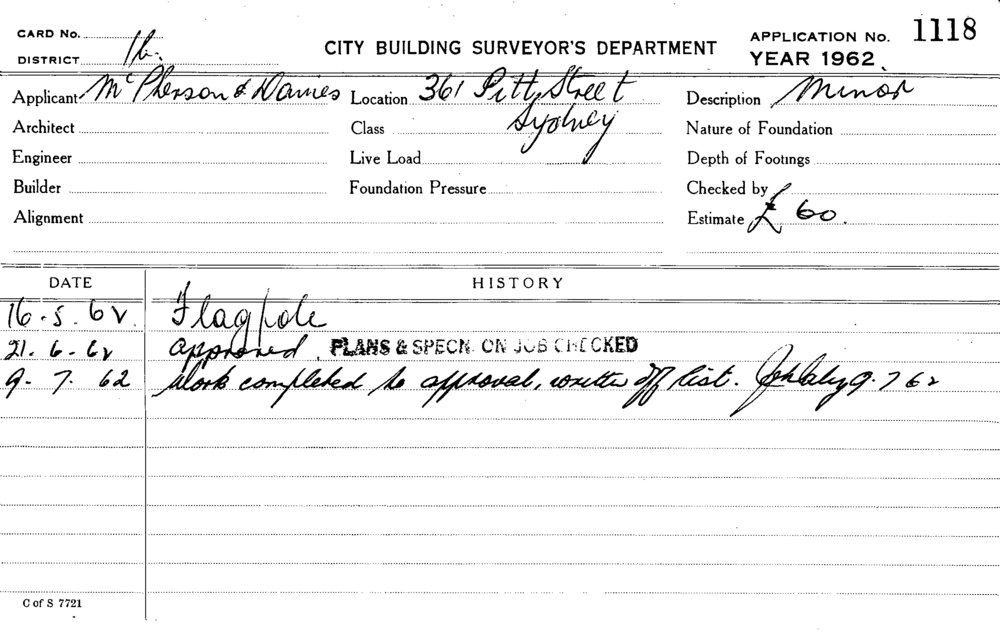 CARD No.
DISTRICT 1b. CITY BUILDING SURVEYOR'S DEPARTMENT APPLICATION No. 1118
YEAR 1962
Applicant McPherson & Davies Location 361 Pitt Street Description Minor
Architect Class Sydney Nature of Foundation
Engineer Live Load Depth of Footings
Builder Foundation Pressure Checked by
Alignment Estimate £ 60.
DATE HISTORY
16.5.62 Flagpole
21.6.62 approved. PLANS & SPECN. ON JOB CHECKED
9.7.62 Work completed to approval, written off list. 9.7 62
C of S 7721